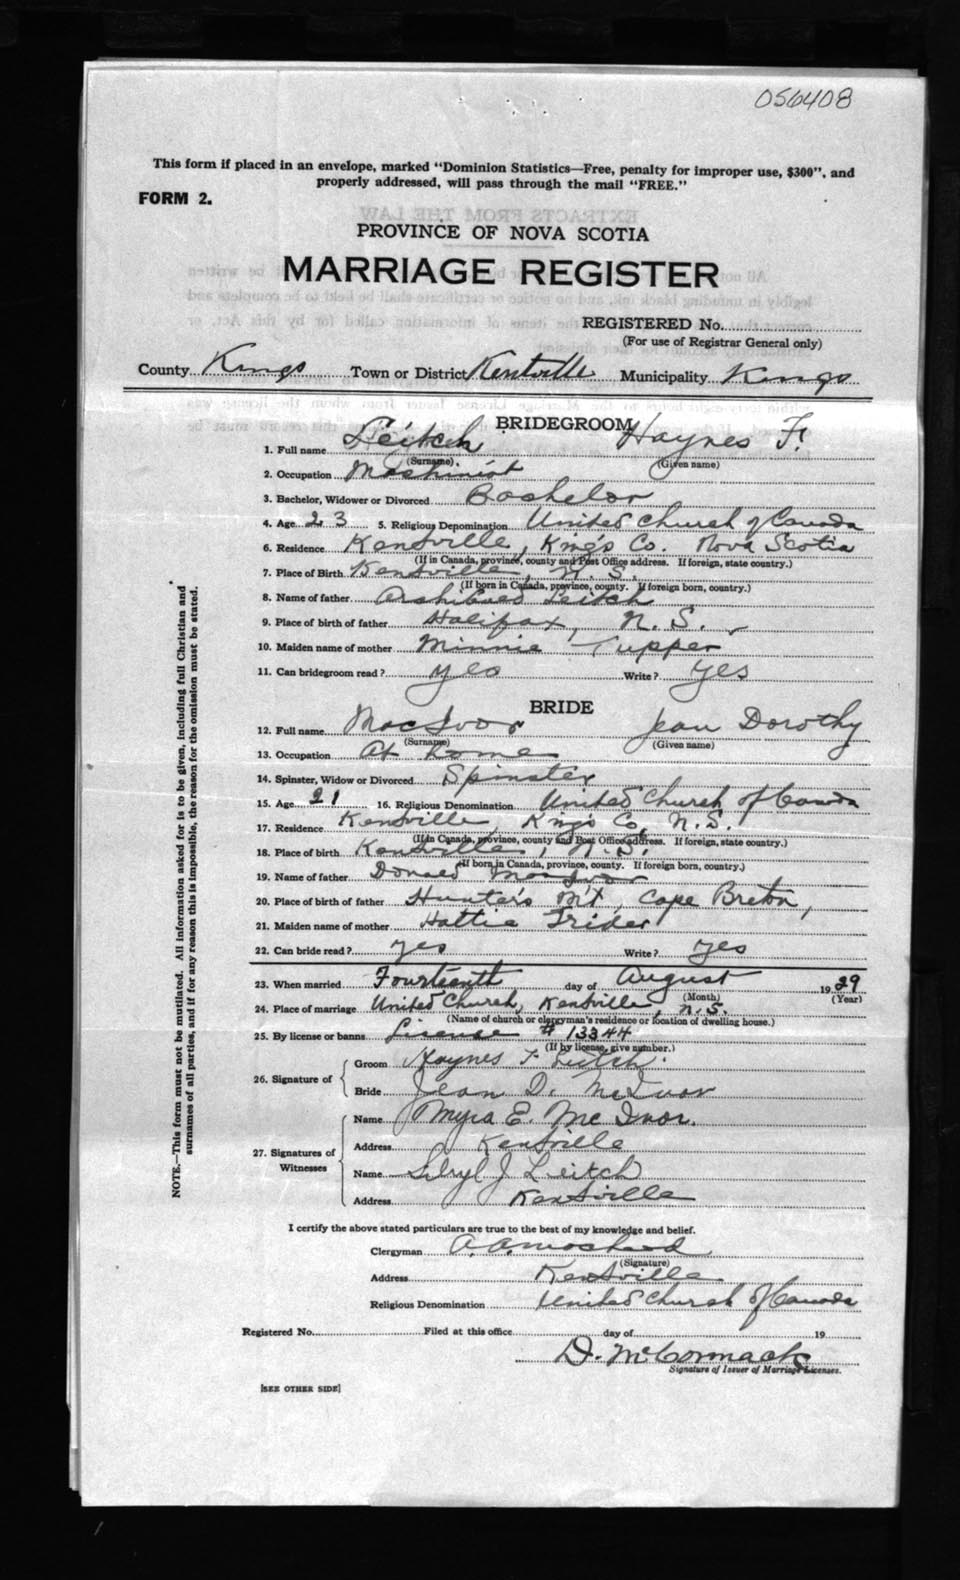 056408
This form if placed in an envelope, marked "Dominion Statistics—Free, penalty for improper use, $300", and
properly addressed, will pass through the mail "FREE."
FORM 2.
PROVINCE OF NOVA SCOTIA
MARRIAGE REGISTER
REGISTERED No.
(For use of Registrar General only)
County Kings Town or District Kentville Municipality Kings
BRIDEGROOM
1. Full name Leitch Haynes F.
(Surname) (Given name)
2. Occupation Machinist
3. Bachelor, Widower or Divorced Bachelor
4. Age 23 5. Religious Denomination United Church of Canada
6. Residence Kentville, Kings Co. Nova Scotia
(If in Canada, province, county and Post Office address. If foreign, state country.)
7. Place of Birth Kentville, N. S.
(If born in Canada, province, county. If foreign born, country.)
8. Name of father Archibald Leitch
9. Place of birth of father Halifax, N. S.
10. Maiden name of mother Minnie Tupper
11. Can bridegroom read? yes Write? yes
BRIDE
12. Full name MacIvor Jean Dorothy
(Surname) (Given name)
13. Occupation At Home
14. Spinster, Widow or Divorced Spinster
15. Age 21 16. Religious Denomination United Church of Canada
17. Residence Kentville, King's Co, N. S.
(If in Canada, province, county and Post Office address. If foreign, state country.)
18. Place of birth Kentville, N. S.
(If born in Canada, province, county. If foreign born, country.)
19. Name of father Donald MacIvor
20. Place of birth of father Hunter's Mt, Cape Breton,
21. Maiden name of mother Hattie Trider
22. Can bride read? yes Write? yes
23. When married Fourteenth day of August 1929
(Month) (Year)
24. Place of marriage United Church, Kentville, N.S.
(Name of church or clergyman's residence or location of dwelling house.)
25. By license or banns License # 13344
(If by license, give number.)
26. Signature of
Groom Haynes F. Leitch
Bride Jean D. McIvor
27. Signatures of Witnesses
Name Myra E. McIvor.
Address Kentville
Name J. Leitch
Address Kentville
I certify the above stated particulars are true to the best of my knowledge and belief.
Clergyman
(Signature)
Address Kentville
Religious Denomination United Church of Canada
Registered No. Filed at this office day of 19
D. McCormack
Signature of Issuer of Marriage Licenses.
[SEE OTHER SIDE]
NOTE.—This form must not be mutilated. All information asked for is to be given, including full Christian and
surnames of all parties, and if for any reason this is impossible, the reason for the omission must be stated.